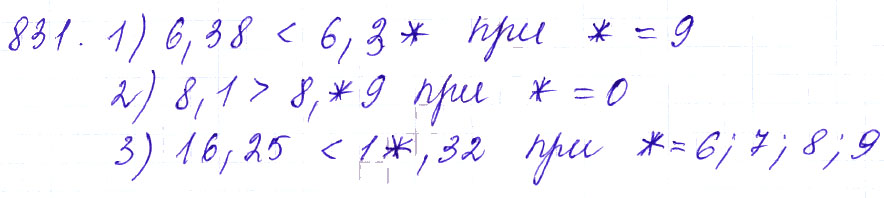 831. 1) 6,38 < 6,3* при * = 9
2) 8,1 > 8,*9 при * = 0
3) 16,25 < 1*,32 при * = 6; 7; 8; 9